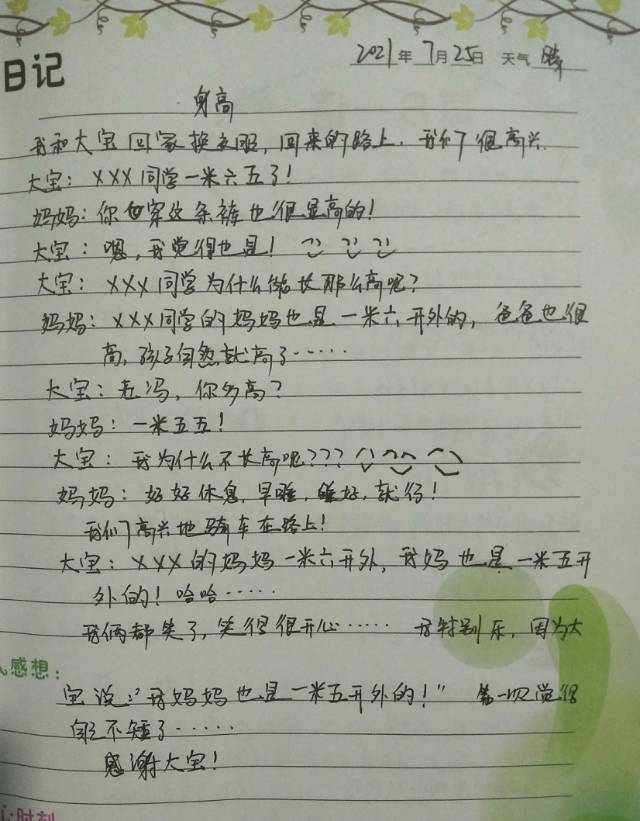 日记
2021年7月25日 天气 晴
身高
我和大宝回家换衣服,回来的路上,我们很高兴.
大宝:XXX同学一米六五了!
妈妈:你穿这条裤也很显高的!
大宝:嗯,我觉得也是!
大宝:XXX同学为什么能长那么高呢?
妈妈:XXX同学的妈妈也是一米六开外的,爸爸也很
高,孩子自然就高了……
大宝:老冯,你多高?
妈妈:一米五五!
大宝:我为什么不长高呢???
妈妈:好好休息,早睡,睡好,就行!
我们高兴地骑车在路上!
大宝:XXX的妈妈一米六开外,我妈也是一米五开
外的!哈哈……
我俩都笑了,笑得很开心…… 我特别乐,因为大
感想:
宝说:"我妈妈也是一米五开外的!" 第一次觉得
自己不矮了……
感谢大宝!
时刻